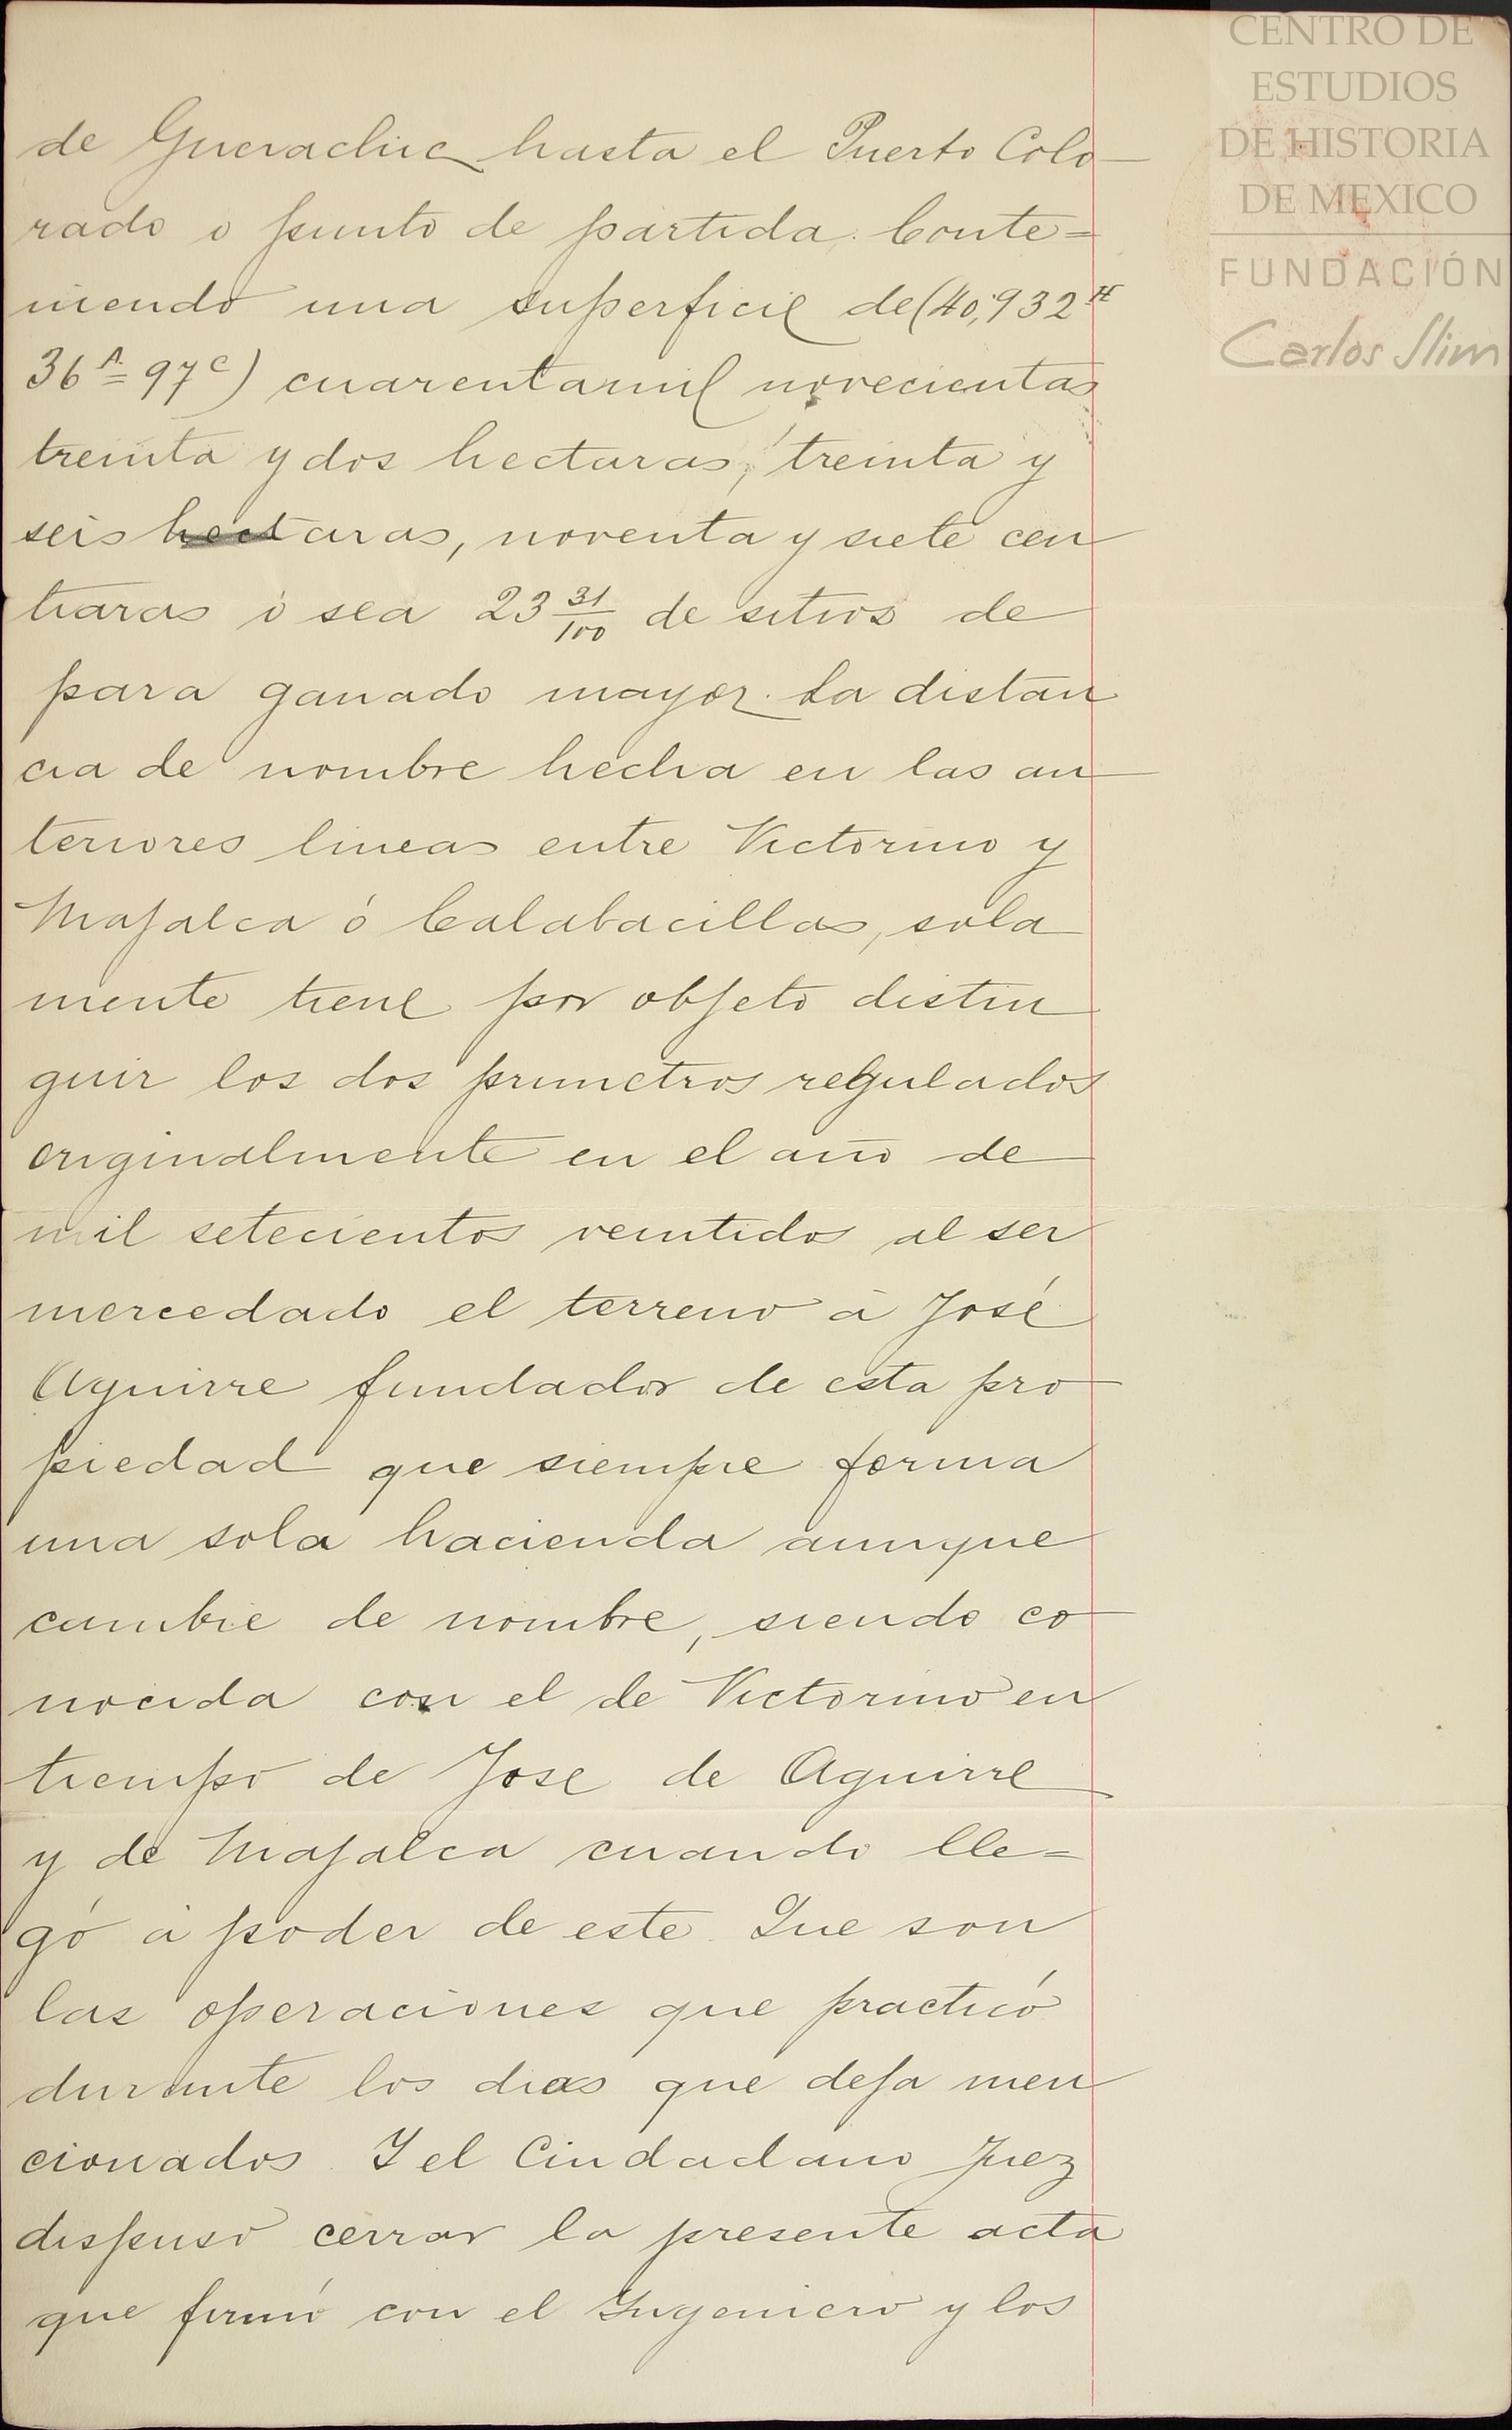 de Guerachic hasta el Puerto Colo
rado o punto de partida. Conte=
niendo una superficie de (40,932 H
36 A= 97 c) cuarentamil novecientas
treinta y dos hectaras, treinta y
seis hectaras, noventa y siete cen
tiaras ó sea 23 31/100 de sitios de
para ganado mayor. La distan
cia de nombre hecha en las an
teriores lineas entre Victorino y
Majalca ó Calabacillas, sola
mente tiene por objeto distin
guir los dos primetros regulados
originalmente en el año de
mil setecientos veintidos al ser
mercedado el terreno á José
Aguirre fundador de esta pro
piedad que siempre forma
una sola hacienda aunque
cambie de nombre, siendo co
nocida con el de Victorino en
tiempo de Jose de Aguirre
y de Majalca cuando lle=
gó á poder de este. Que son
las operaciones que practicó
durante los dias que deja men
cionados. Y el Ciudadano Juez
dispuso cerrar la presente acta
que firmó con el Ingeniero y los
CENTRO DE
ESTUDIOS
DE HISTORIA
DE MEXICO
FUNDACIÓN
Carlos Slim